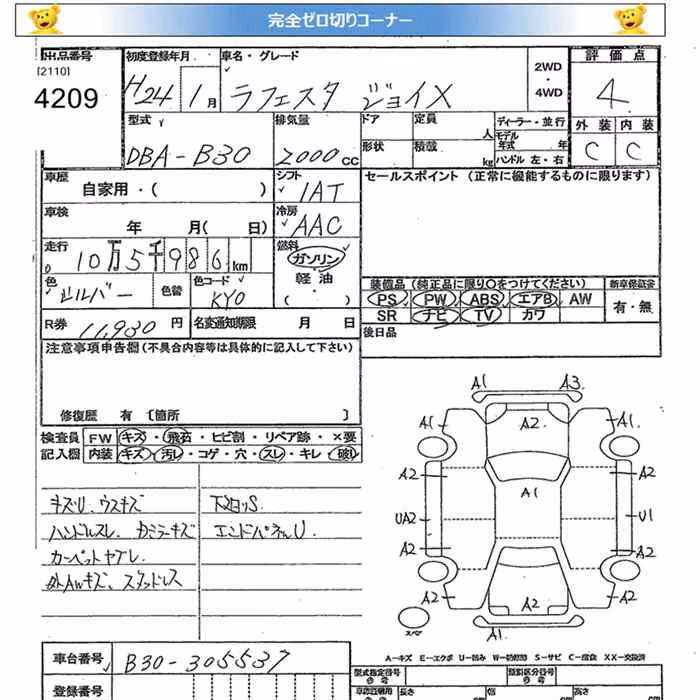 完全ゼロ切りコーナー
出品番号 初度登録年月 車名・グレード 2WD ・ 4WD 評価点
[2110]
4209 H24 1月 ラフェスタ ジョイX 4
型式 排気量 ドア 定員 人 ディーラー・並行 外装 内装
DBA-B30 2000cc 形状 積載 kg モデル年式 年 ハンドル 左・右 C C
車歴 自家用・( ) シフト 1AT セールスポイント (正常に機能するものに限ります)
車検 年 月( 日) 冷房 AAC
走行 10万5千986km 燃料 ガソリン・軽油 ( )
色 シルバー 色替 色コード KY0
装備品 (純正品に限り○をつけてください) 新車保証書
PS PW ABS エアB AW 有・無
SR ナビ TV カワ
R券 11,980円 名変通知期限 月 日 後日品
注意事項申告欄 (不具合内容等は具体的に記入して下さい)
修復歴 有〔箇所 〕
検査員 FW キズ・飛石・ヒビ割・リペア跡・×要
記入欄 内装 キズ・汚レ・コゲ・穴・スレ・キレ・破レ
キズU、ウスキズ 下廻リS
ハンドルスレ エンドパネルU
カーペットヤブレ
外AWキズ、スタッドレス
A1 A3
A1 A2 A1
A2 A2
A1
UA2 U1
A2 A2
A2 A2 A2
A1
スペア
A-キズ E-エクボ U-凹み W-補修跡 S-サビ C-腐食 XX-交換済
車台番号 B30-305537 型式指定番号 類別区分番号
登録番号 車両記載寸法 長さ cm 幅 cm 高さ cm